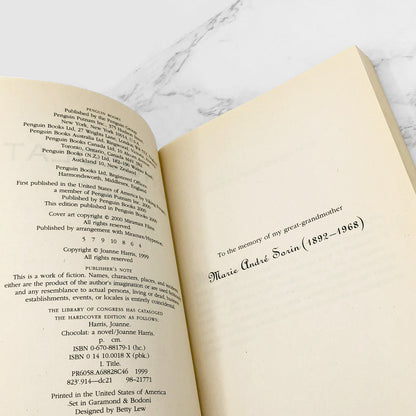 PENGUIN BOOKS
Published by the Penguin Group
Penguin Putnam Inc., 375 Hudson Street,
New York, New York 10014, U.S.A.
Penguin Books Ltd, 27 Wrights Lane, London
Penguin Books Australia Ltd, Ringwood,
Penguin Books Canada Ltd, 10
Toronto, Ontario, Canada M4V
Penguin Books (N.Z.) Ltd, 182-190 Wairau Road,
Auckland 10, New Zealand
Penguin Books Ltd, Registered Offices:
Harmondsworth, Middlesex, England
First published in the United States of America by Viking Penguin,
a member of Penguin Putnam Inc. 
This edition published in Penguin Books 2000
5 7 9 10 8 6 4
Cover art copyright © 2000 Miramax Films
All rights reserved.
Published by arrangement with Miramax/Hyperion
Copyright © Joanne Harris, 1999
All rights reserved
PUBLISHER'S NOTE
This is a work of fiction. Names, characters, places, and incidents
either are the product of the author's imagination or are used
and any resemblance to actual persons, living or dead,
establishments, events, or locales is entirely coincidental.
THE LIBRARY OF CONGRESS HAS CATALOGED
THE HARDCOVER EDITION AS FOLLOWS:
Harris, Joanne.
Chocolat: a novel/Joanne Harris.
p. cm.
ISBN 0-670-88179-1 (hc.)
ISBN 0 14 10.0018 X (pbk.)
I. Title.
PR6058.A68828C46 1999
823'.914—dc21 98-21771
Printed in the United States of America
Set in Garamond & Bodoni
Designed by Betty Lew
To the memory of my great-grandmother
Marie André Sorin (1892–1968)